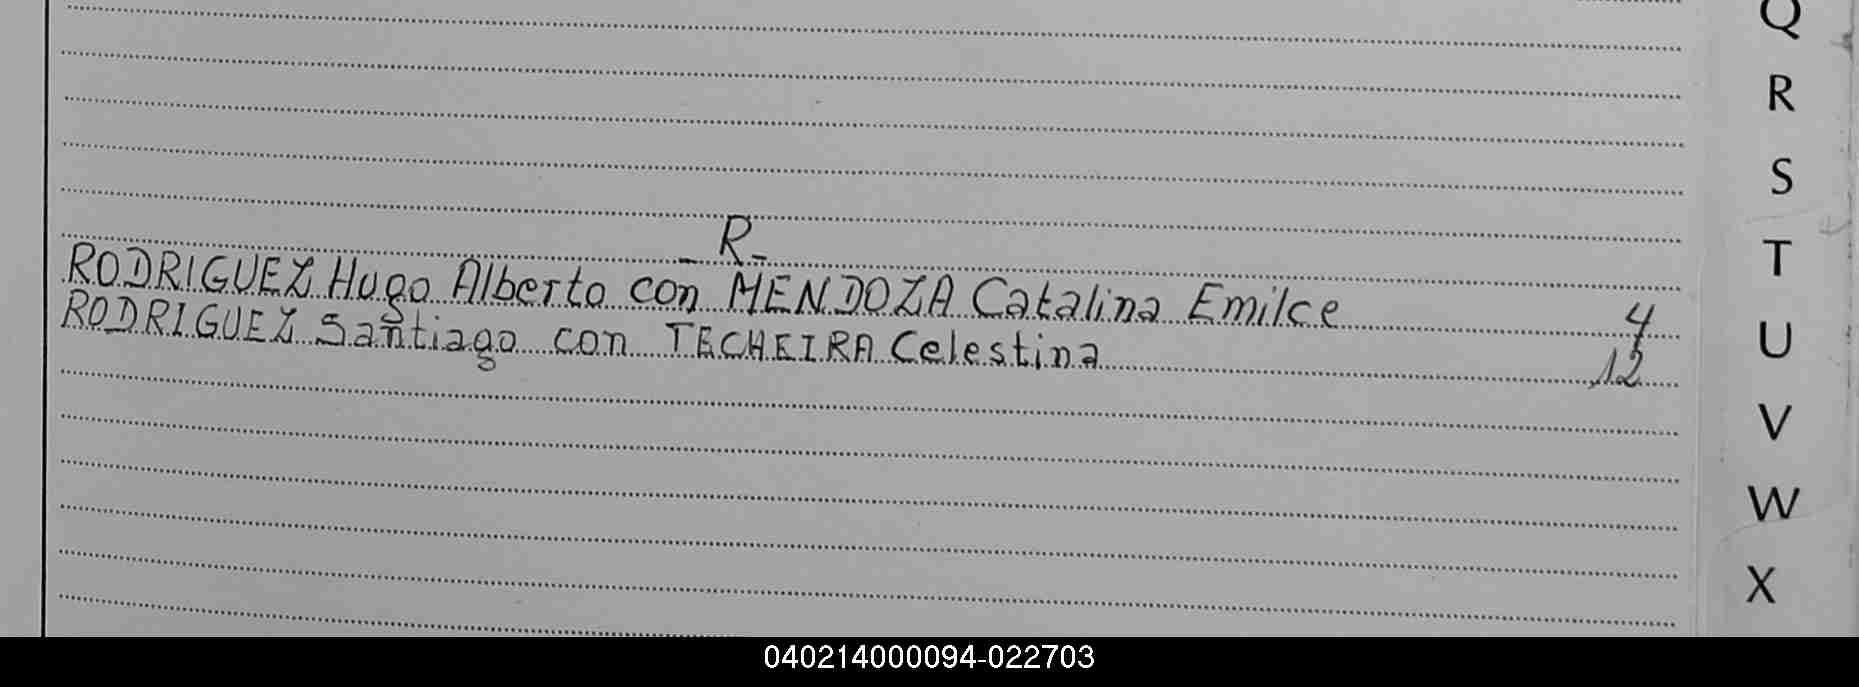 Q
R
S
T
U
V
W
X
- R -
RODRIGUEZ Hugo Alberto con MENDOZA Catalina Emilce 4
RODRIGUEZ Santiago con TECHEIRA Celestina 12
040214000094-022703